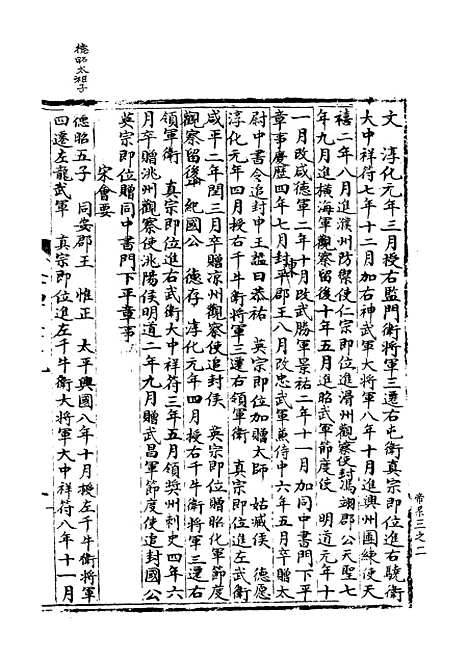 文　淳化元年三月授右監門衛將軍三遷右屯衛真宗即位進右驍衛
大中祥符七年十二月加右神武軍大將軍八年十月進興州團練使天
禧二年八月進濮州防禦使仁宗即位進滑州觀察使封馮翊郡公天聖七
年九月進橫海軍觀察留後十年五月進昭武軍節度使　明道元年十
一月改威德軍二年十月改武勝軍景祐二年十一月加同中書門下平
章事慶歷四年七月封平郡王八月改忠武軍兼侍中六年五月卒贈太
尉中書令追封中王謚曰恭裕　英宗即位加贈太師　姑臧侯　德愿
淳化元年四月授右千牛衛將軍三遷右領軍衛　真宗即位進左武衛
咸平二年閏三月卒贈涼州觀察使追封侯　英宗即位贈昭化軍節度
觀察留後　紀國公　德存　淳化元年四月授右千牛衛將軍三遷右
領軍衛　真宗即位進右武衛大中祥符三年五月領獎州刺史四年六
月卒贈洮州觀察使洮陽侯明道二年九月贈武昌軍節度使追封國公
英宗即位贈同中書門下平章事
宋會要
德昭五子　同安郡王　惟正　太平興國八年十月授左千牛衛將軍
四遷左龍武軍　真宗即位進左千牛衛大將軍大中祥符八年十一月
德昭太祖子
帝系三之二